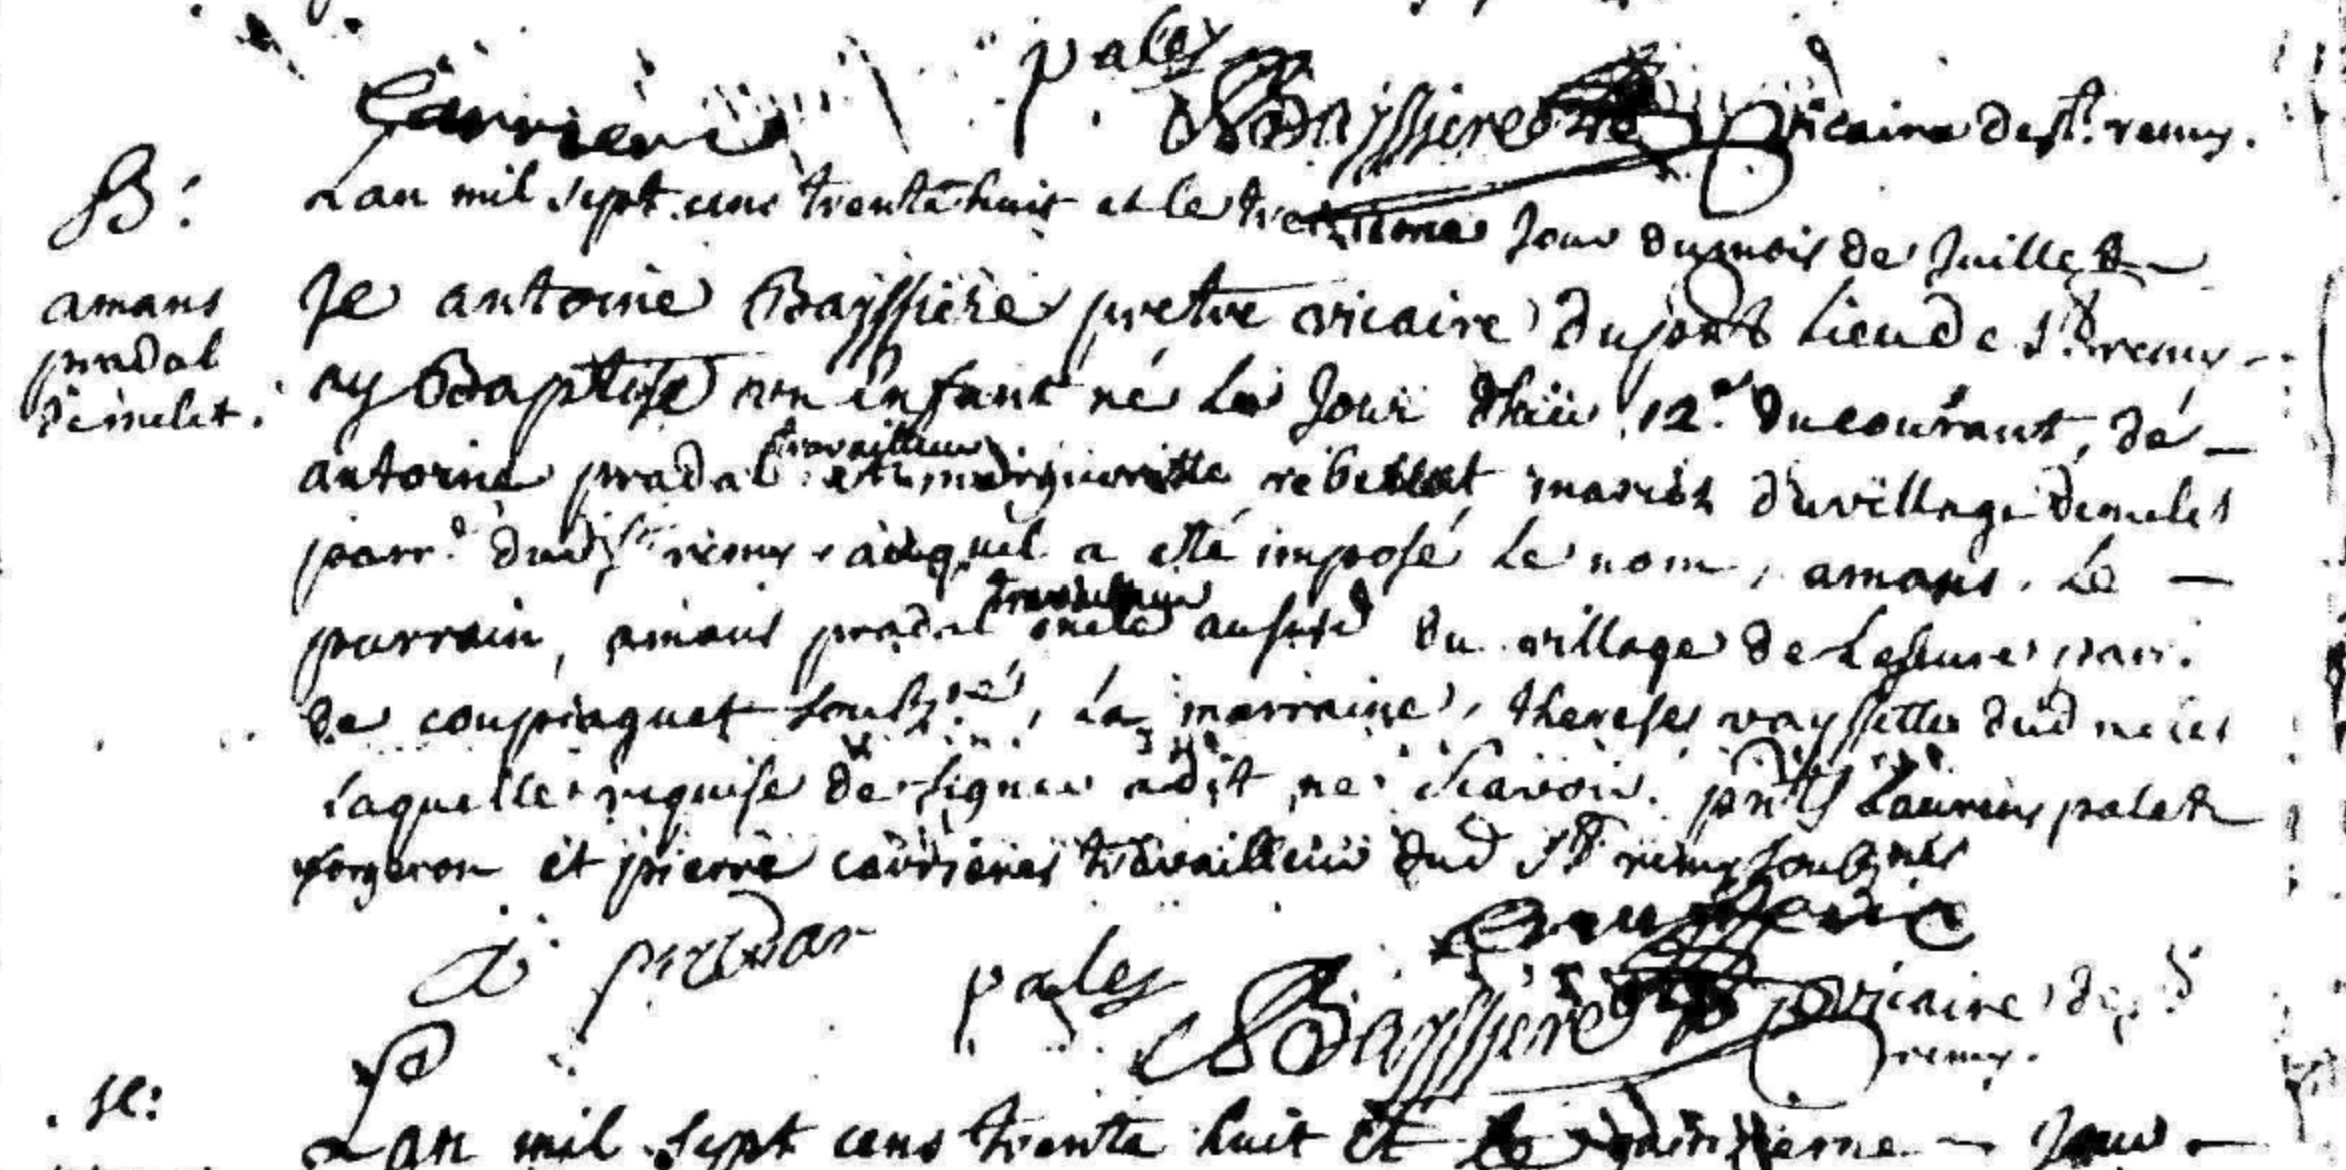 paley
Carriere Bayssiere ptre vicaire de st. remy.
B: Lan mil sept cens trente huit et le treizieme Jour du mois de Juillet
amans Je antoine Bayssiere pretre vicaire du pnt Lieu de st. remy
pradal ay Baptisé un enfant né le Jour d'hïer 12.e du courant, de
demelet. antoine pradal travailleur et margueritte mariés du village demelet
parr.e dud st remy auquel a eté imposé Le nom, amans. Le
parrain, amans pradal travailleur oncle du village de Lescure parr.
de coupiaguet soubz.né, La marraine, therese vayssette dud melet
Laquelle requise de signer a dit ne scavoir. pnts Laurens palet
forgeron et pierre carrieres travailleur dud st remy soubznés
a pradal
paley Carriere
Bayssiere ptre vicaire de st
remy.
se: Lan mil sept cens trente huit et le quinzieme Jour